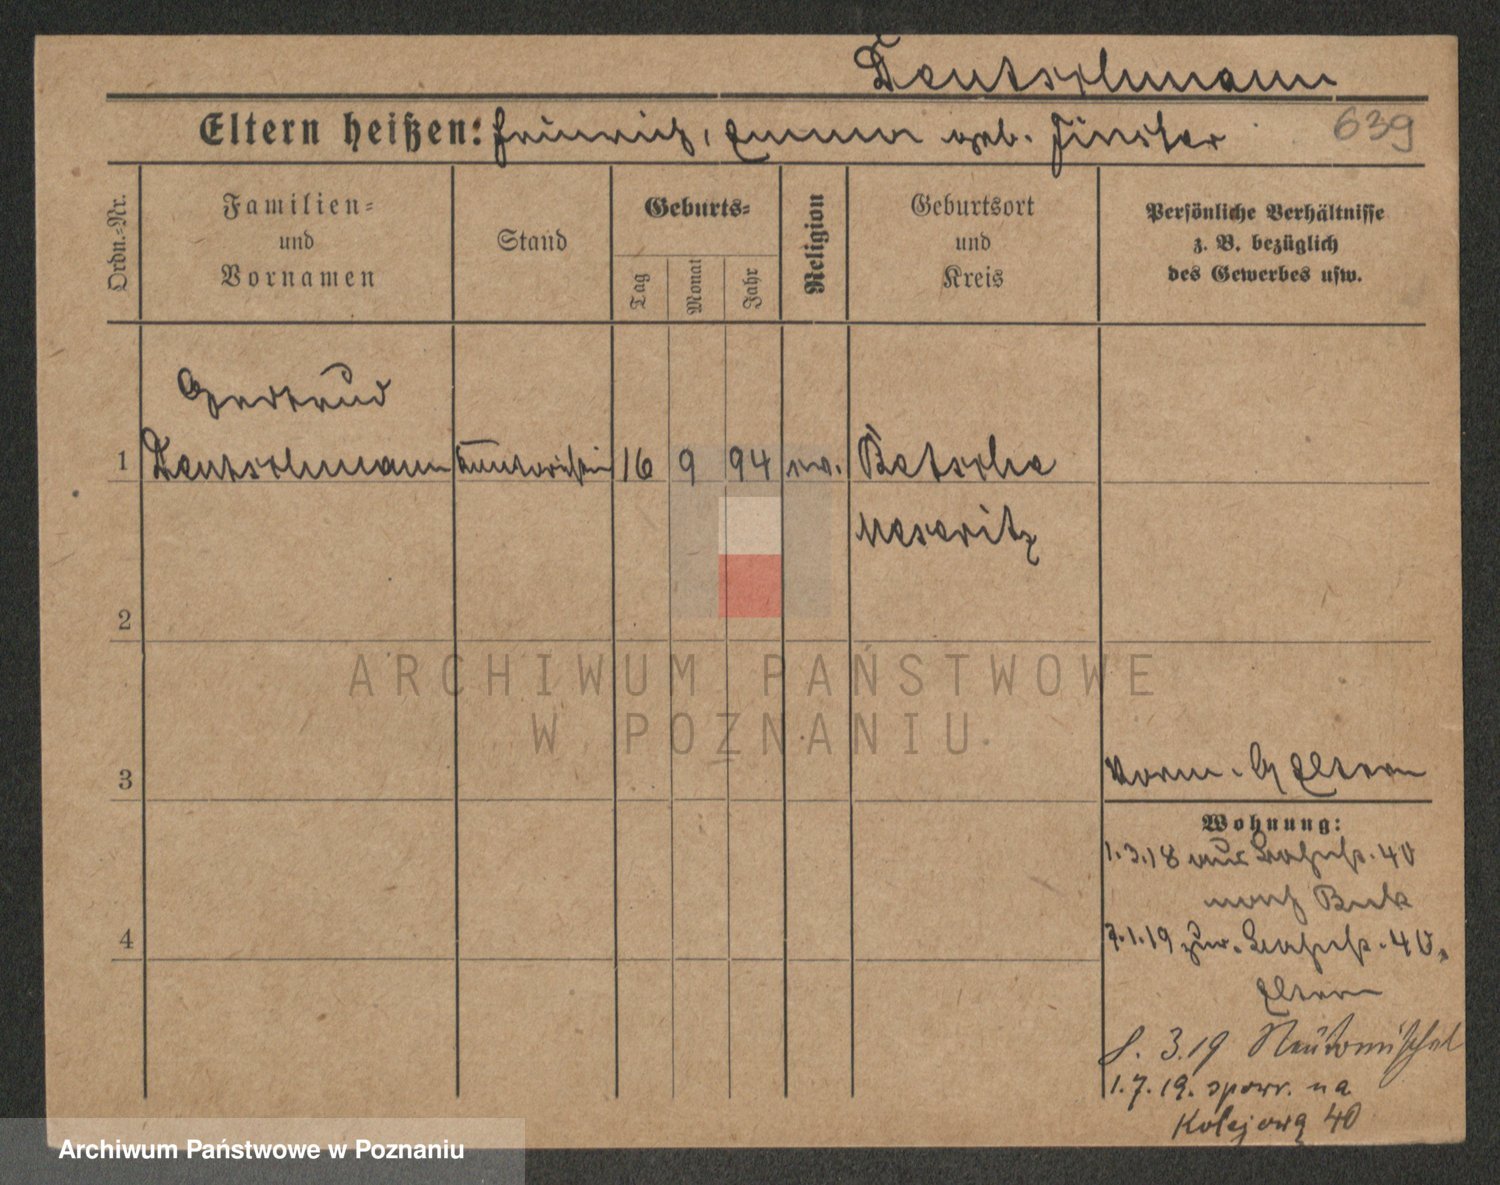 Deutschmann
Eltern heißen: Heinrich, Emma geb. Finster
639
Ordn.-Nr.
Familien-
und
Vornamen
Stand
Geburts-
Tag
Monat
Jahr
Religion
Geburtsort
und
Kreis
Persönliche Verhältnisse
z. B. bezüglich
des Gewerbes usw.
Gertrud
1 Deutschmann Kontoristin 16 9 94 ev. Betsche
Meseritz
2
ARCHIWUM PAŃSTWOWE
W POZNANIU
3
Vorm. Eltern
Wohnung:
1.3.18 aus Bahnhst. 40
nach Buk
7.1.19 zur. Bahnhst. 40,
Eltern
4
8. 3.19 Neutomischel
1.7.19. spowr. na
Kolejową 40
Archiwum Państwowe w Poznaniu